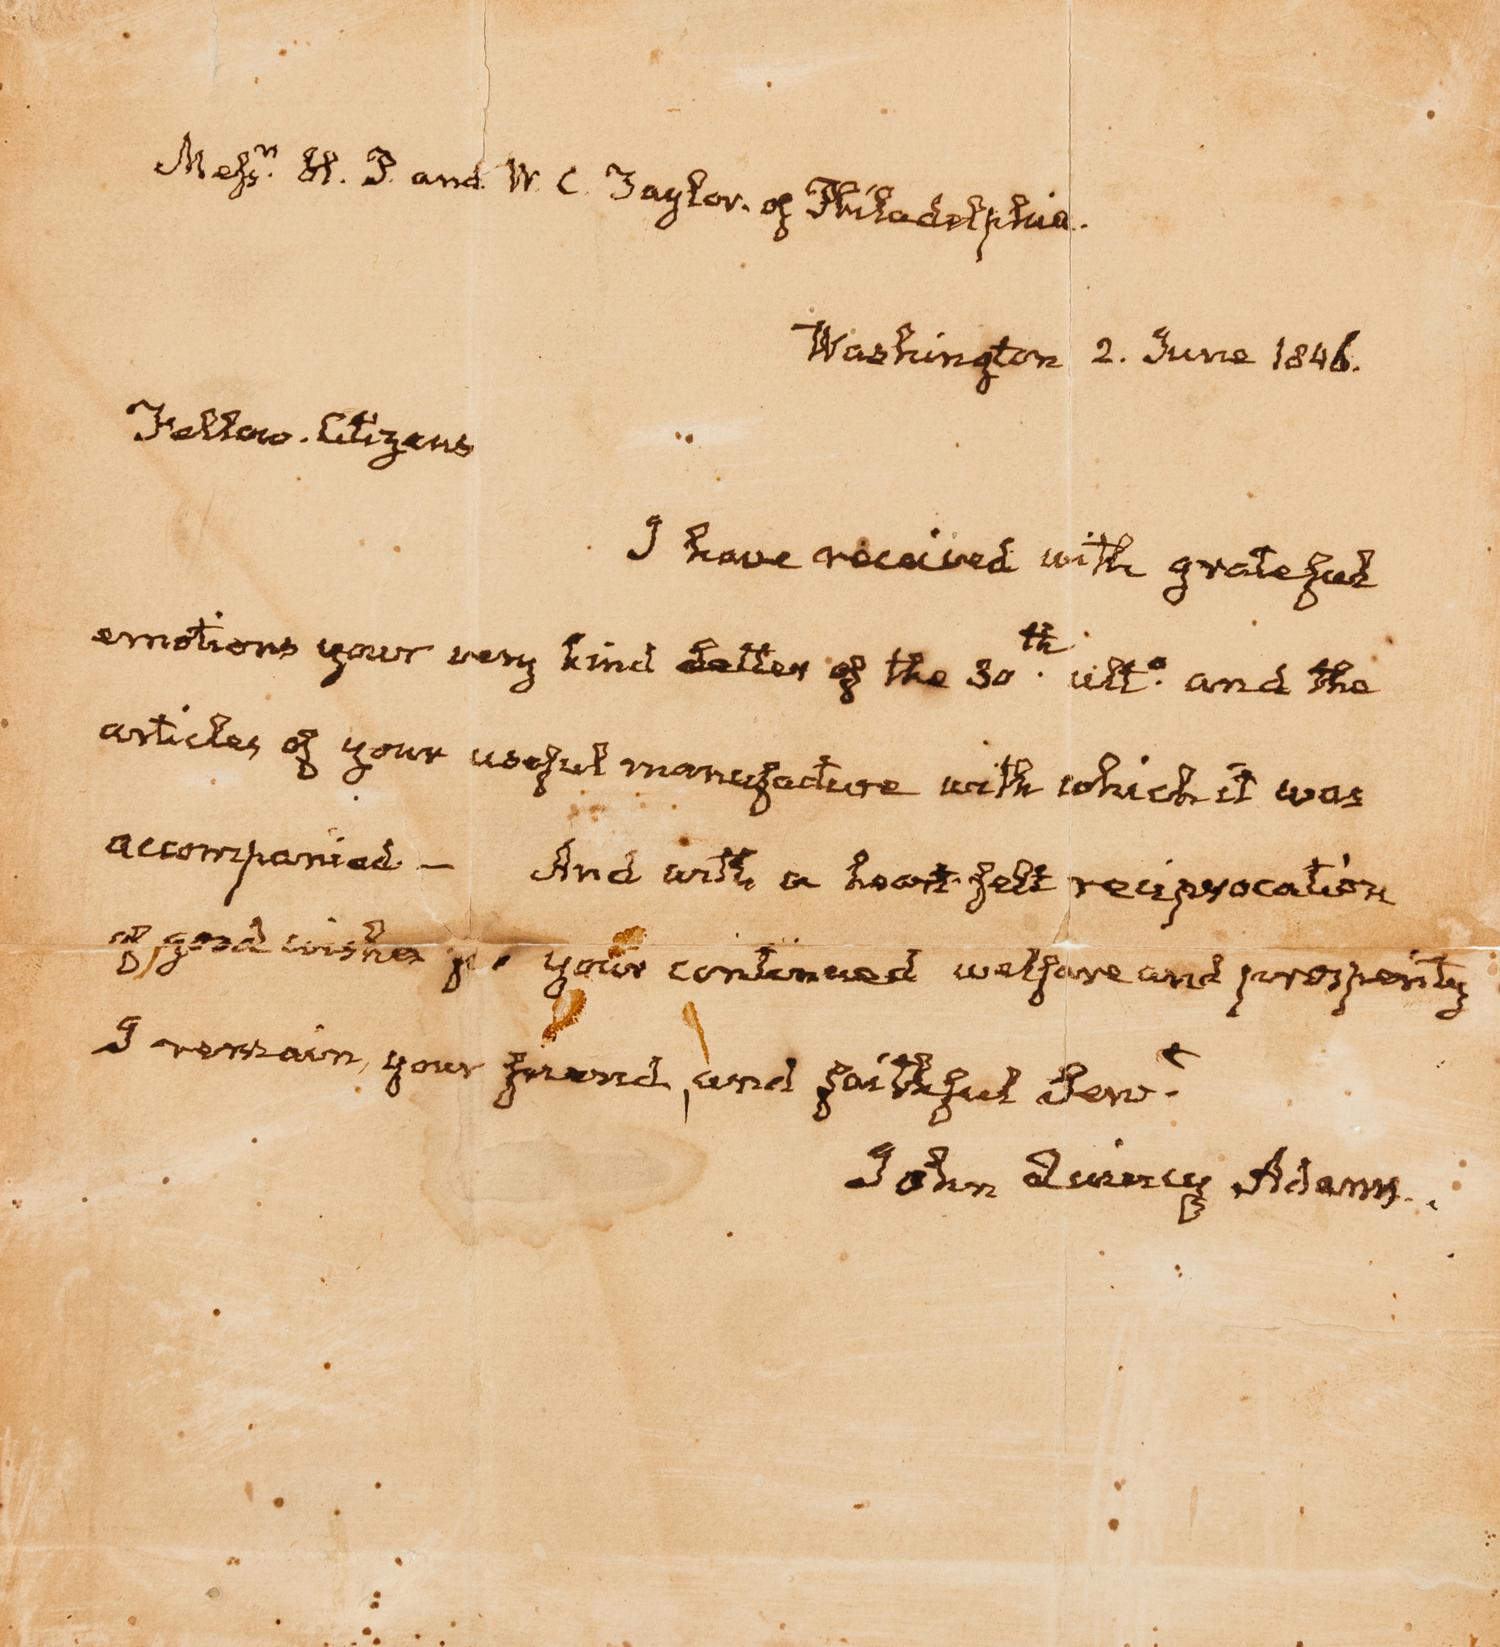 Messrs. H. P. and W. C. Taylor. of Philadelphia.
Washington 2. June 1846.
Fellow. Citizens
I have received with grateful
emotions your very kind letter of the 30th. ulto. and the
articles of your useful manufacture with which it was
accompanied — And with a heart felt reciprocation
of good wishes for your continued welfare and prosperity
I remain, your friend, and faithful Servt
John Quincy Adams.